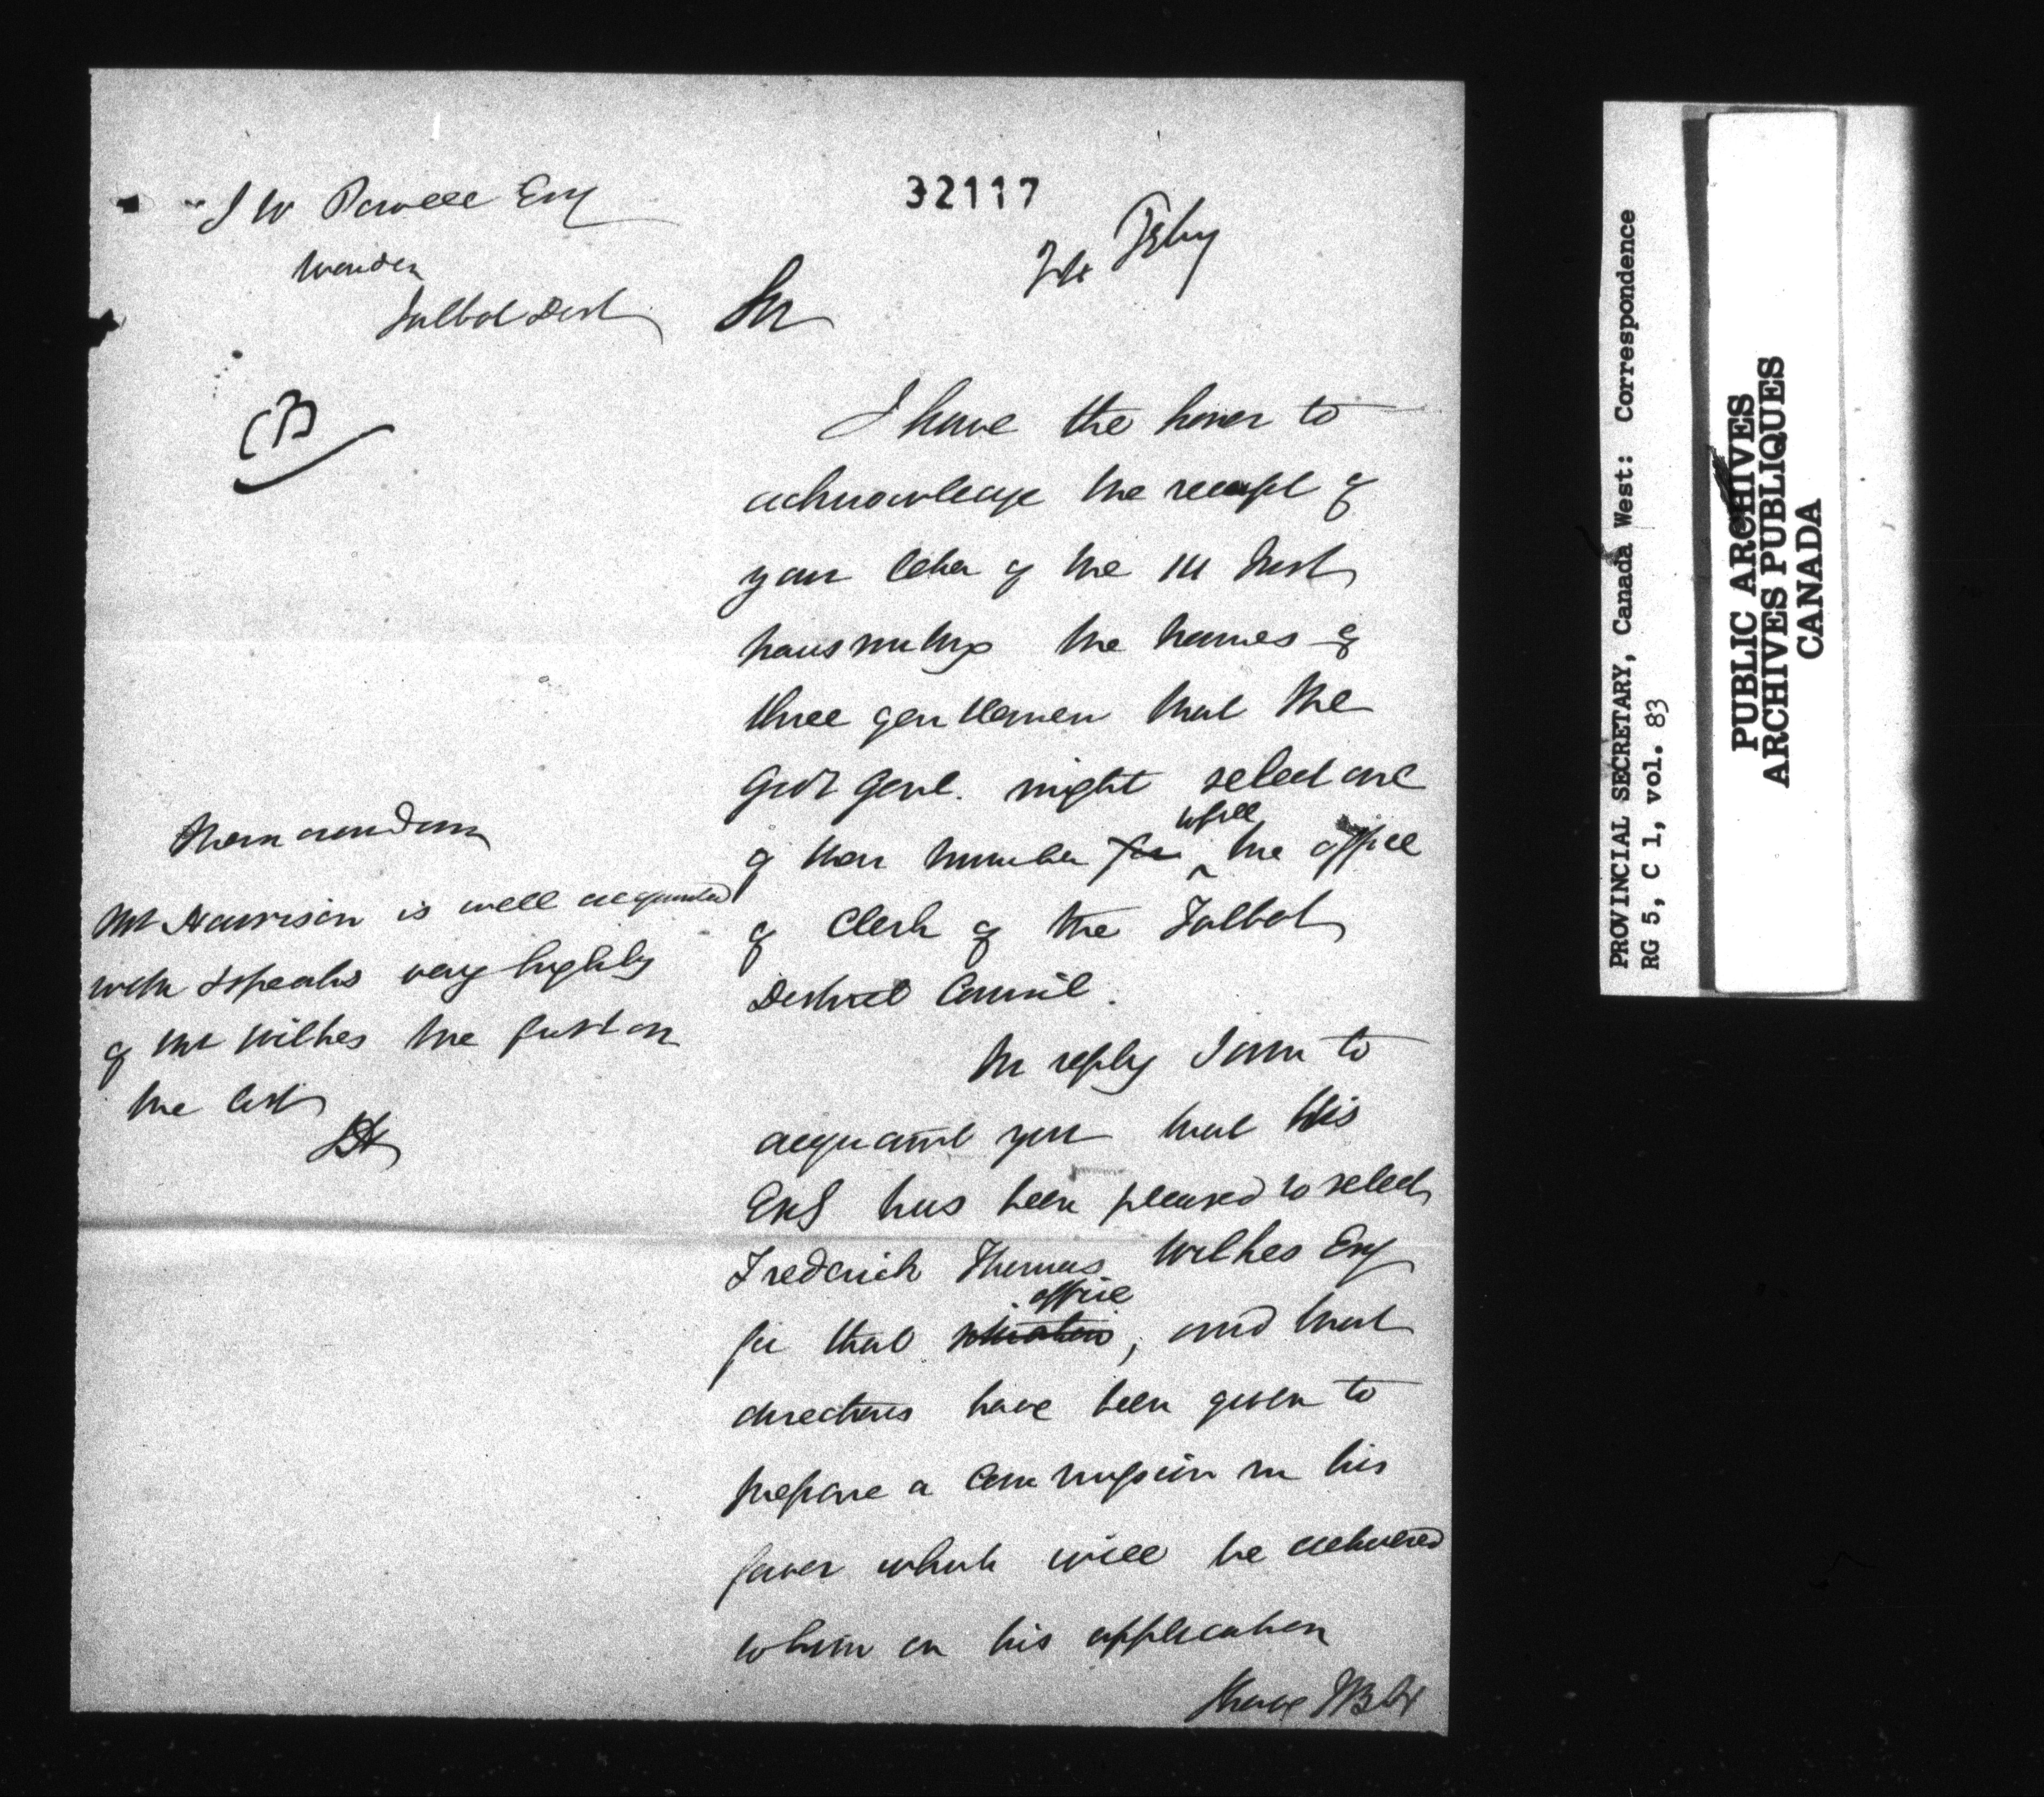 32117
J W Powell Esq
Warden
Talbot Dist
24 Feby
Sir
I have the honor to
acknowledge the receipt of
your letter of the 14 Inst
transmitting the names of
three gentlemen that the
Govr Genl. might select one
of their number for to fill the office
of Clerk of the Talbot
District Council.
In reply I am to
acquaint you that His
Exy has been pleased to select
Frederick Thomas Wilkes Esq
for that situation office, and that
directions have been given to
prepare a Commission in his
favor which will be delivered
to him on his application
I have
Memorandum
Mr Harrison is well acquainted
with & speaks very highly
of Mr Wilkes the first on
the list
PROVINCIAL SECRETARY, Canada West: Correspondence
RG 5, C 1, vol. 83
PUBLIC ARCHIVES
ARCHIVES PUBLIQUES
CANADA